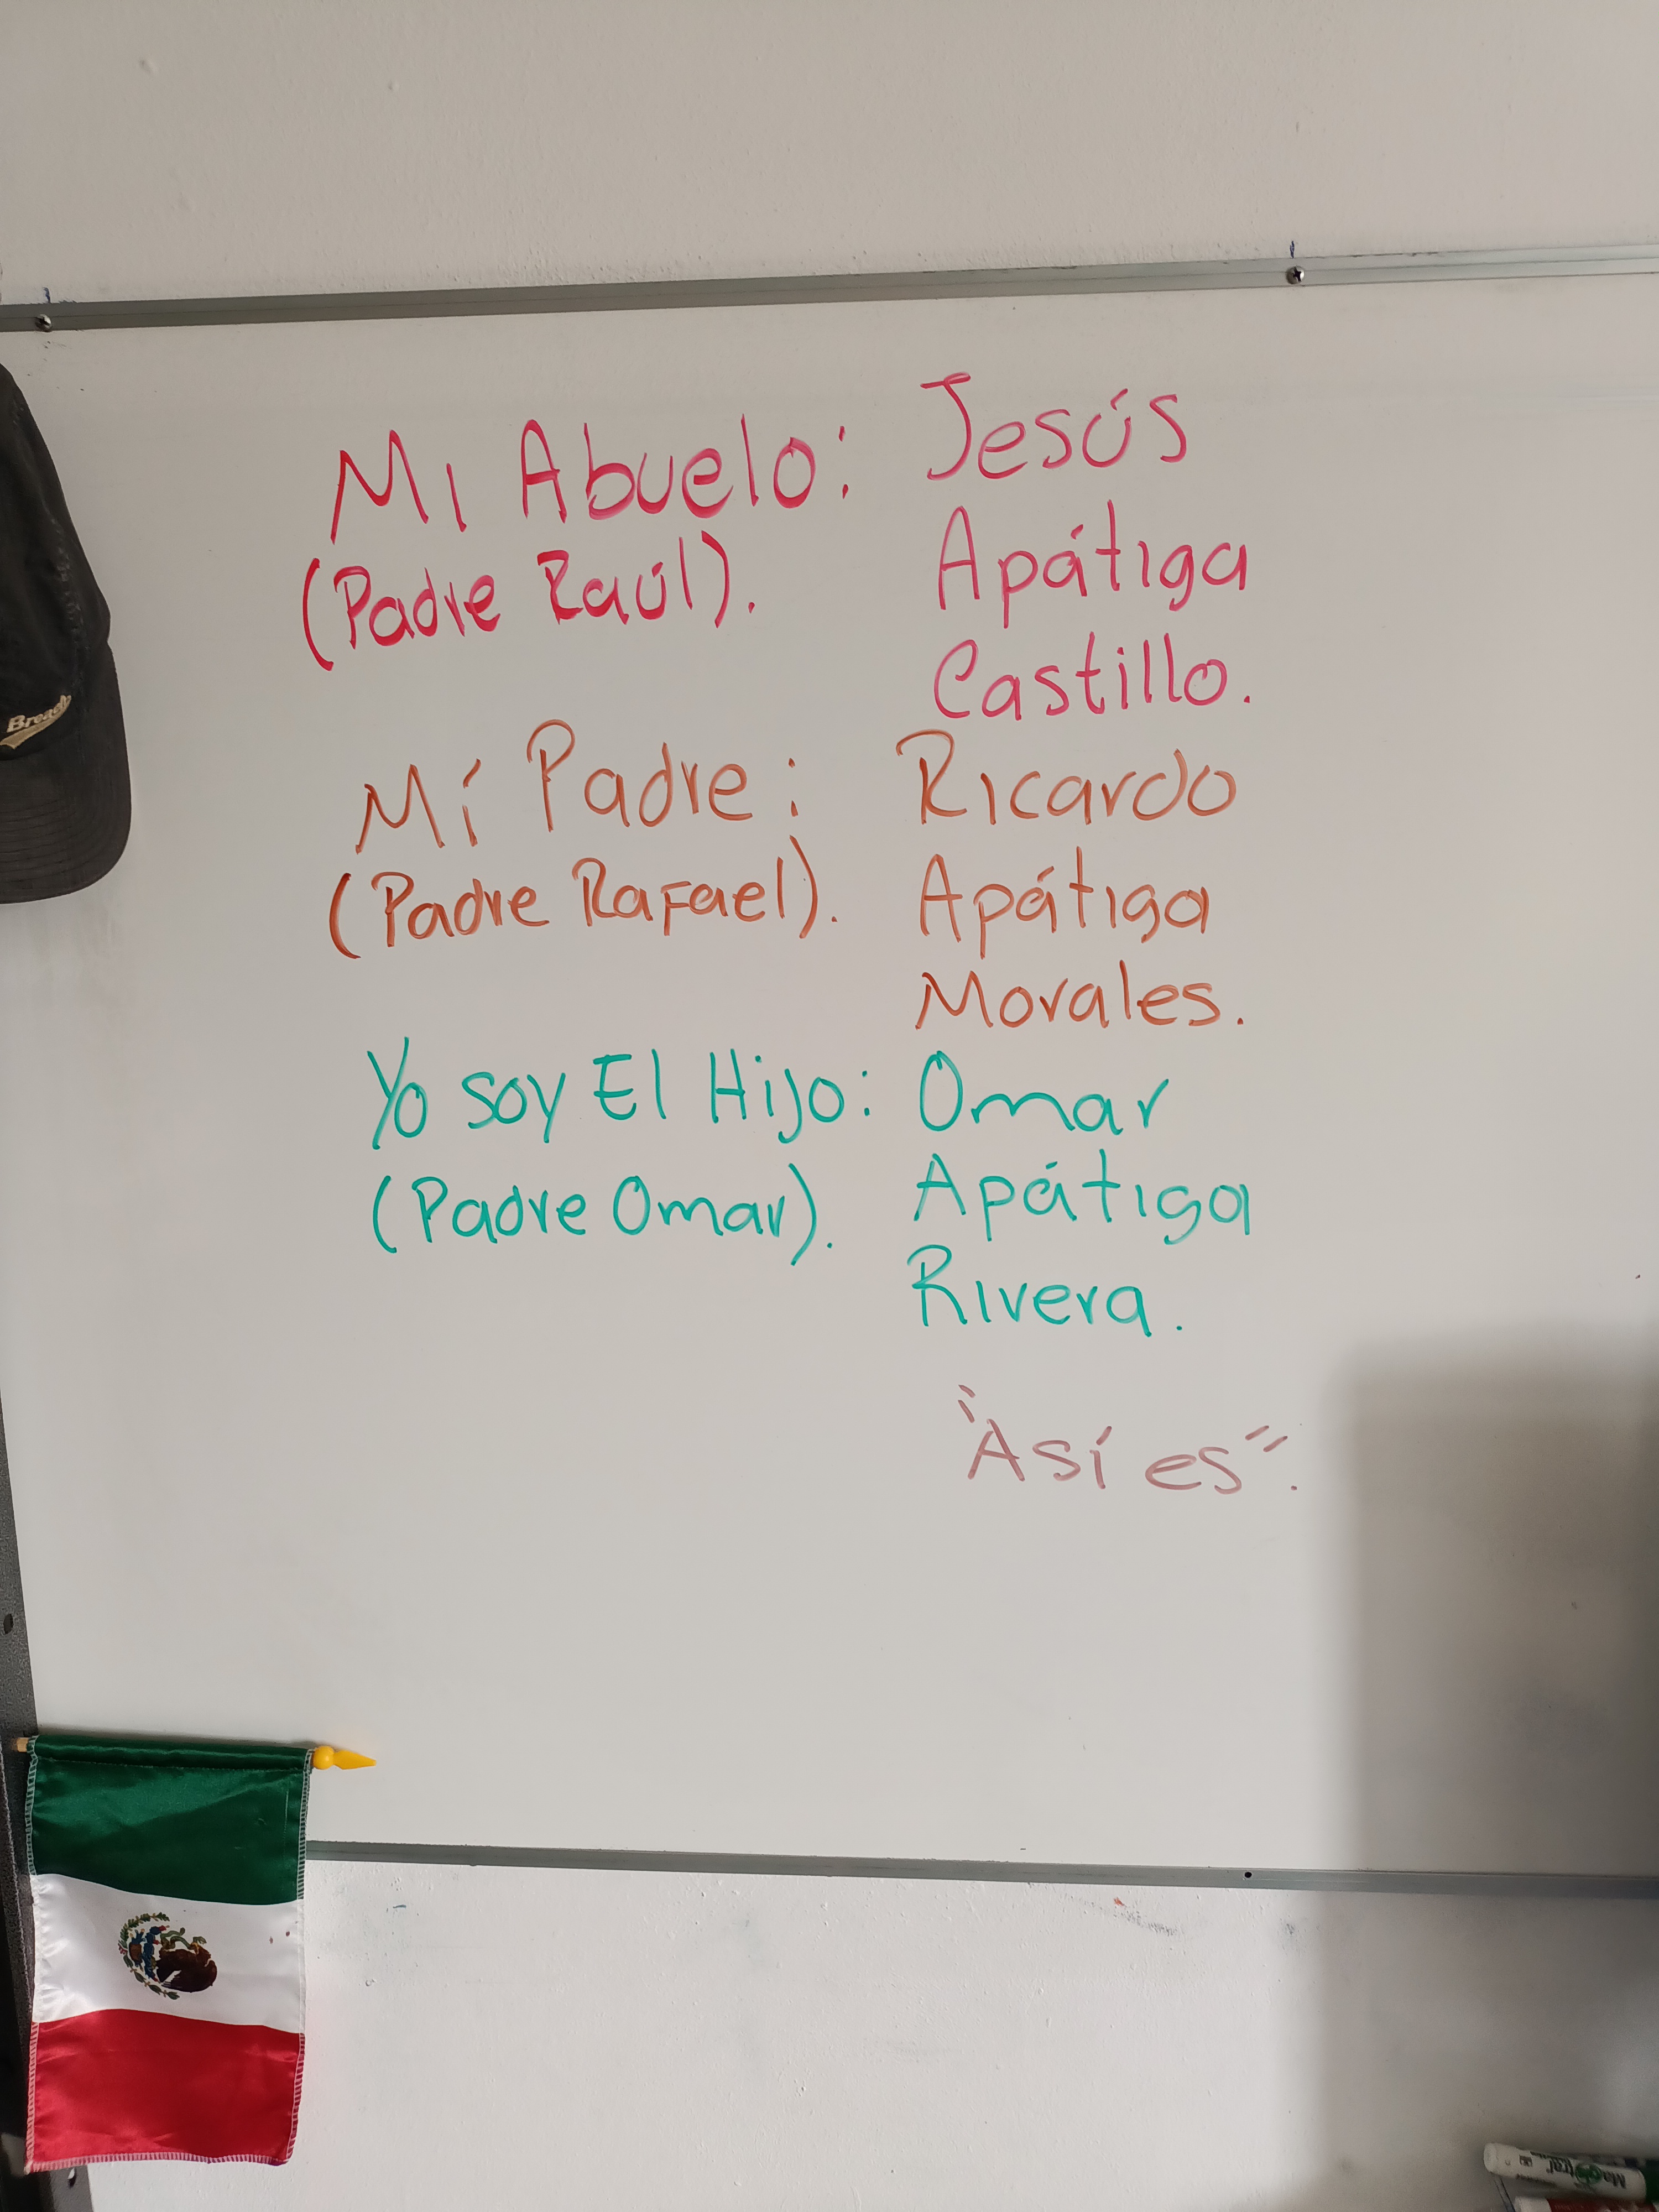 Mi Abuelo: Jesús
(Padre Raúl). Apátiga
Castillo.
Mí Padre: Ricardo
(Padre Rafael). Apátiga
Morales.
Yo soy El Hijo: Omar
(Padre Omar). Apátiga
Rivera.
"Así es".